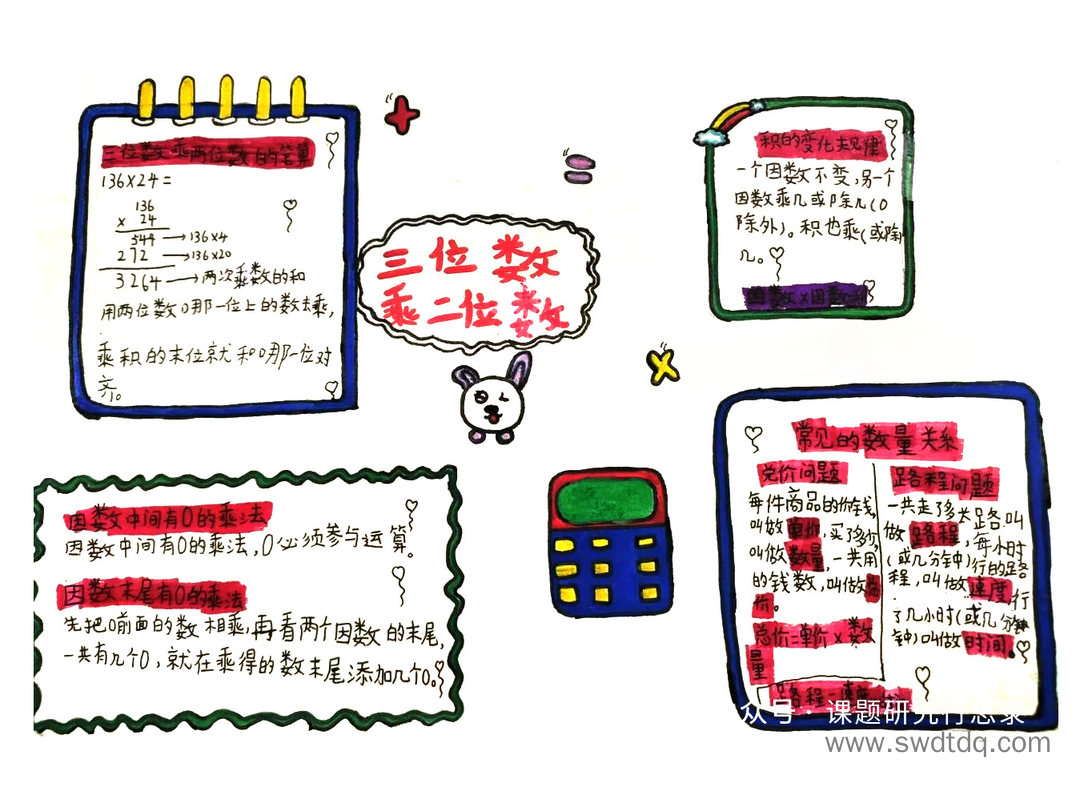 三位数乘两位数的笔算
136×24=
136
× 24
544 → 136×4
272 → 136×20
3264 → 两次乘数的和
用两位数哪一位上的数去乘,
乘积的末位就和哪一位对
齐。
三位数
乘二位数
积的变化规律
一个因数不变,另一个
因数乘几或除几(0
除外)。积也乘(或除
几。
因数×因数=积
因数中间有0的乘法
因数中间有0的乘法,0必须参与运算。
因数末尾有0的乘法
先把0前面的数相乘,再看两个因数的末尾,
一共有几个0,就在乘得的数末尾添加几个0。
常见的数量关系
总价问题
每件商品的价钱,
叫做单价,买了多少,
叫做数量,一共用
的钱数,叫做总
价。
总价=单价×数
量
路程问题
一共走了多长路叫
做路程,每小时
(或几分钟)行的路
程,叫做速度,行
了几小时(或几分钟
钟)叫做时间。
路程=速度
众号·课题研究行思录
www.swdtdq.com